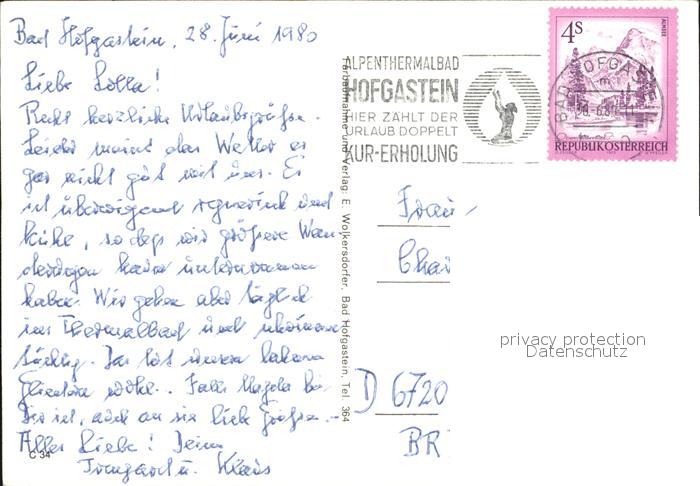 Bad Hofgastein, 28. Juni 1980
Liebe Lolla!
Recht herzliche Urlaubsgrüße.
Leider meint das Wetter es
gar nicht gut mit uns. Es
ist überwiegend regnerisch und
kühl, so daß wir größere Wan-
derungen kaum unternommen
haben. Wir gehen aber täglich
ins Thermalbad und schwimmen
tüchtig. Das tut unseren lahmen
Gliedern wohl. Falls Magda bei
Dir ist, auch an sie liebe Grüße.-
Alles Liebe! Deine
Irmgard u. Klaus
C 34
Farbaufnahme und Verlag: E. Wolkersdorfer, Bad Hofgastein, Tel. 364
ALPENTHERMALBAD
HOFGASTEIN
HIER ZÄHLT DER
URLAUB DOPPELT
KUR-ERHOLUNG
4S
ALMSEE
REPUBLIK ÖSTERREICH
BAD HOFGA
Frau
Char
D 6720
BR
privacy protection
Datenschutz